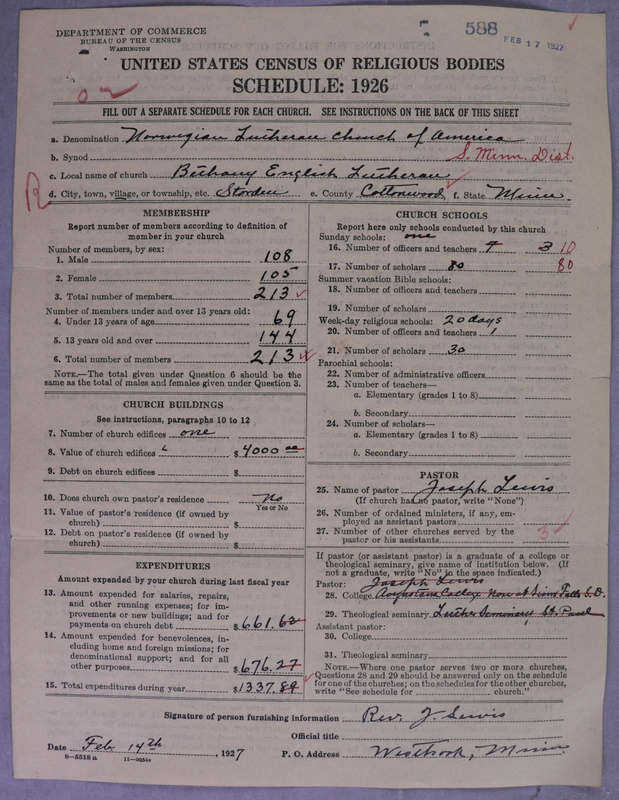 DEPARTMENT OF COMMERCE
BUREAU OF THE CENSUS
WASHINGTON
588
FEB 17 1927
UNITED STATES CENSUS OF RELIGIOUS BODIES
SCHEDULE: 1926
FILL OUT A SEPARATE SCHEDULE FOR EACH CHURCH. SEE INSTRUCTIONS ON THE BACK OF THIS SHEET
a. Denomination Norwegian Lutheran Church of America
b. Synod S. Minn. Dist.
c. Local name of church Bethany English Lutheran
R
d. City, town, village, or township, etc. Storden e. County Cottonwood f. State Minn.
MEMBERSHIP
Report number of members according to definition of
member in your church
Number of members, by sex:
1. Male 108
2. Female 105
3. Total number of members 213
Number of members under and over 13 years old:
4. Under 13 years of age 69
5. 13 years old and over 144
6. Total number of members 213
NOTE.—The total given under Question 6 should be
same as the total of males and females given under Question 3.
CHURCH BUILDINGS
See instructions, paragraphs 10 to 12
7. Number of church edifices one
8. Value of church edifices $ 4000 00
9. Debt on church edifices $
10. Does church own pastor's residence No
Yes or No
11. Value of pastor's residence (if owned by
church) $
12. Debt on pastor's residence (if owned by
church) $
EXPENDITURES
Amount expended by your church during last fiscal year
13. Amount expended for salaries, repairs,
and other running expenses; for im-
provements or new buildings; and for
payments on church debt $ 661.62
14. Amount expended for benevolences, in-
cluding home and foreign missions; for
denominational support; and for all
other purposes $ 676.27
15. Total expenditures during year $ 1337.89
CHURCH SCHOOLS
Report here only schools conducted by this church
Sunday schools: one
16. Number of officers and teachers 7 3 10
17. Number of scholars 80 80
Summer vacation Bible schools:
18. Number of officers and teachers
19. Number of scholars
Week-day religious schools: 20 days
20. Number of officers and teachers 1
21. Number of scholars 30
Parochial schools:
22. Number of administrative officers
23. Number of teachers—
a. Elementary (grades 1 to 8)
b. Secondary
24. Number of scholars—
a. Elementary (grades 1 to 8)
b. Secondary
PASTOR
25. Name of pastor Joseph Lewis
(If church has no pastor, write "None")
26. Number of ordained ministers, if any, em-
ployed as assistant pastors
27. Number of other churches served by the
pastor or his assistants 3
If pastor (or assistant pastor) is a graduate of a college or
theological seminary, give name of institution below. (If
not a graduate, write "No" in the space indicated.)
Pastor: Joseph Lewis
28. College Augustana College Now at Sioux Falls S.D.
29. Theological seminary Luther Seminary, St. Paul
Assistant pastor:
30. College
31. Theological seminary
NOTE.—Where one pastor serves two or more churches,
Questions 28 and 29 should be answered only on the schedule
for one of the churches; on the schedules for the other churches,
write "See schedule for church."
Signature of person furnishing information Rev. J. Lewis
Official title
Date Feb 14th, 1927 P. O. Address Westbrook, Minn
8—5518 a 11—9654a